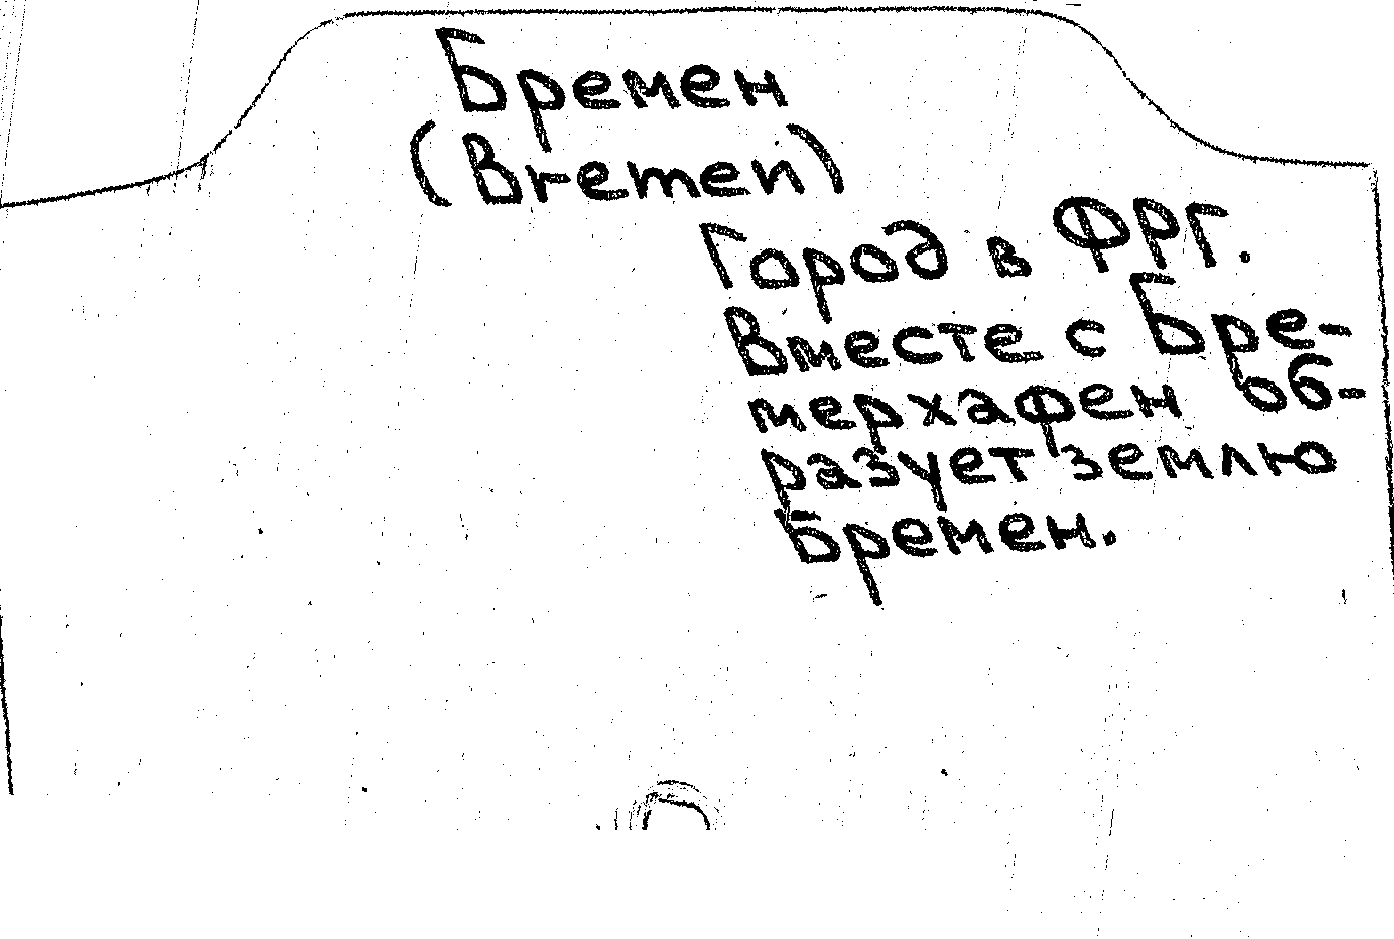 Бремен
(Bremen)
Город в ФРГ.
Вместе с Бре-
мерхафен об-
разует землю
Бремен.